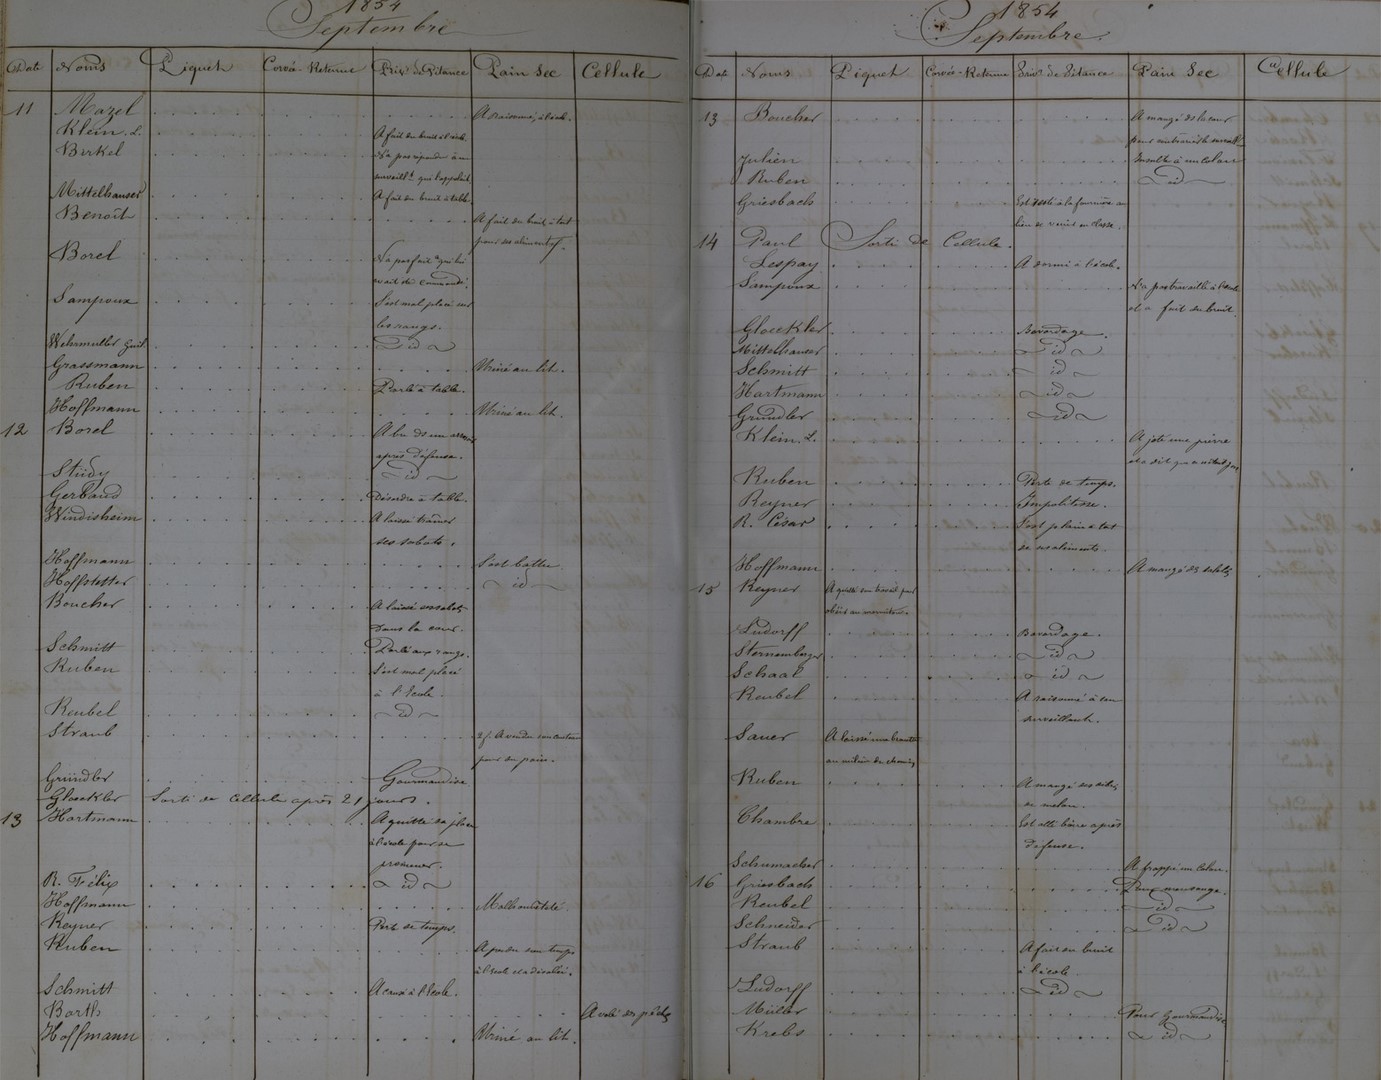 1854
Septembre
Date Noms Piquet Corvée-Retenue Priv.on de Pitance Pain Sec Cellule
11 Mazel A raisonné à l'école.
Klein. L. A fait du bruit à l'école
Berkel N'a pas répondu à un
surveillt qui l'appelait
Mittelhauser A fait du bruit à table.
Benoît A fait du bruit
pour ses aliments.
Borel N'a pas fait ce qui lui
avait été commandé.
Sampoux S'est mal placé sur
les rangs.
Wehrmuller Guil id
Grassmann Uriné au lit.
Ruben Parlé à table.
Hoffmann Uriné au lit.
12 Borel A bu
après défense.
Stüdy id
Gerbaud Désordre à table.
Windisheim A laissé traîner
ses sabots.
Hoffmann S'est battu
Hoffstetter id
Boucher A laissé ses sabots
dans la cour.
Schmitt Parlé aux rangs.
Ruben S'est mal placé
à l'école
Reubel id
Straub A vendu son couteau
pour du pain.
Gründler Gourmandise
Gloeckler Sorti de Cellule après 21 jours.
13 Hartmann A quitté sa place
à l'école pour se
promener.
R. Félix id
Hoffmann Malhonnêteté.
Reyner Perte de temps.
Ruben A perdu son temps
à l'école et a désobéi.
Schmitt A causé à l'école.
Barth A volé des pêches
Hoffmann Uriné au lit.
1854
Septembre.
Date Noms Piquet Corvée-Retenue Priv.on de Pitance Pain Sec Cellule
13 Boucher A mangé

Julien Insulte à un colon
Ruben id
Griesbach Est resté à la au
lieu de venir en classe.
14 Paul Sorti de Cellule.
Lespay A dormi à l'école.
Sampoux N'a pas travaillé à l'école
et a fait du bruit.
Gloeckler Bavardage.
Mittelhauser id
Schmitt id
Hartmann id
Gründler id
Klein. L. A jeté une pierre
et a dit
Ruben Perte de temps.
Reyner Impolitesse.
R. César S'est plaint à tort
de ses aliments.
Hoffmann A mangé des
15 Reyner A quitté son travail pour
obéir au moniteur.
Ludorff Bavardage.
Sternemberger id
Schaal id
Reubel A raisonné à son
surveillant.
Sauer A laissé une brouette
au milieu du chemin
Ruben A mangé

Chambre Est allé boire après
défense.
Schumacher A frappé un Colon.
16 Griesbach Pour mensonge.
Reubel id
Schneider id
Straub A fait du bruit
à l'école.
Ludorff id
Müller Pour gourmandise
Krebs id